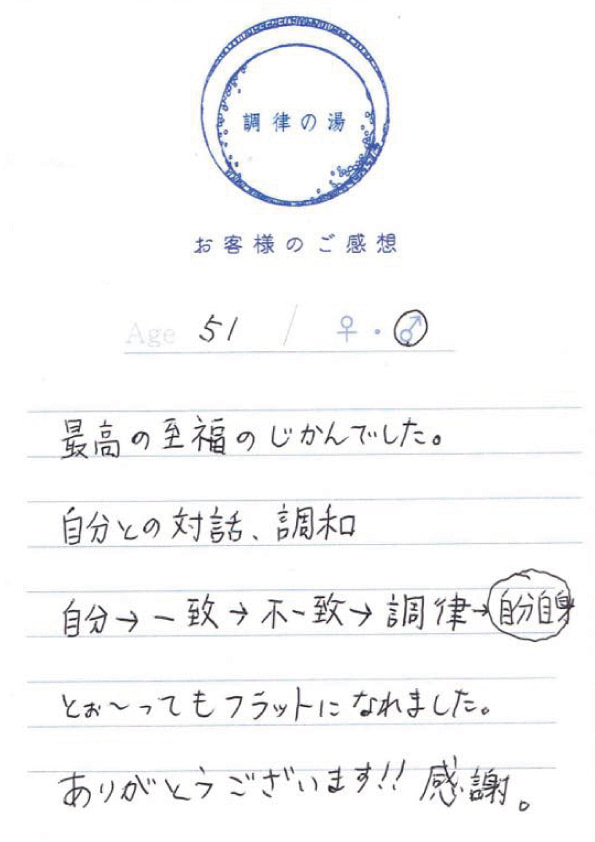 調律の湯
お客様のご感想
Age 51 / ♀・♂
最高の至福のじかんでした。
自分との対話、調和
自分→一致→不一致→調律→自分自身
とぉ〜ってもフラットになれました。
ありがとうございます!! 感謝。